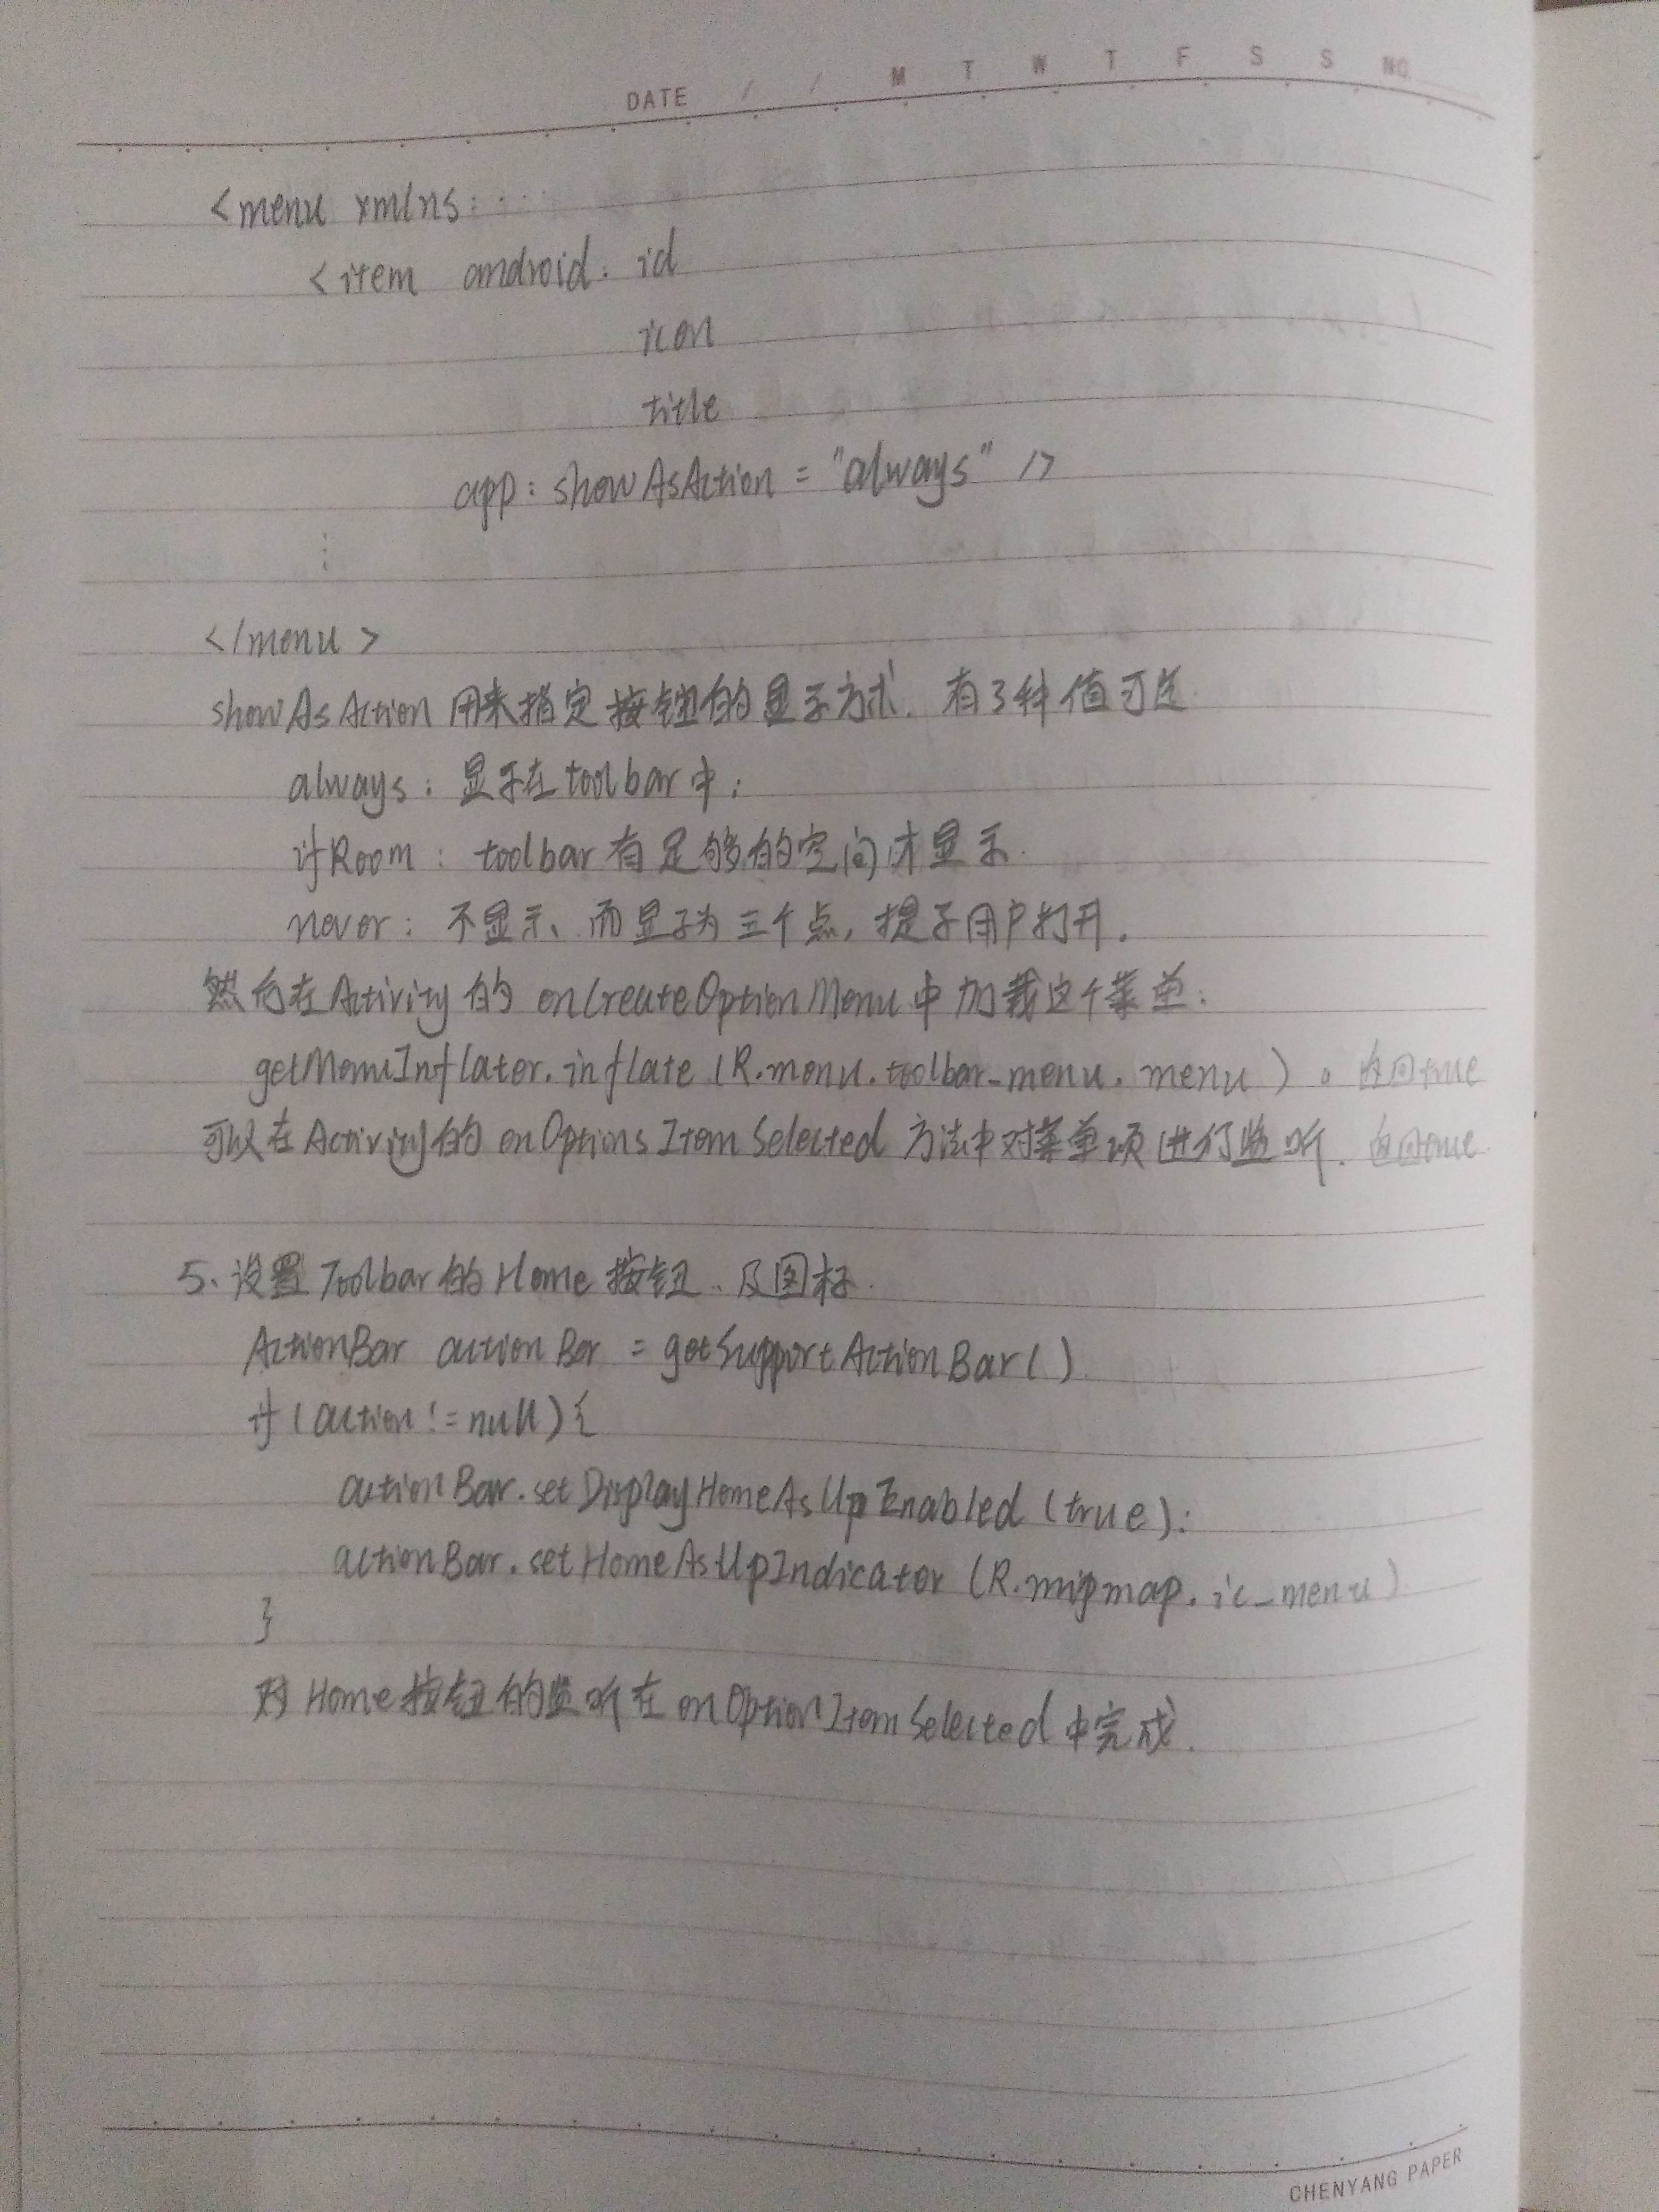 DATE / / M T W T F S S NO
<menu xmlns: ...
<item android: id
icon
title
app: showAsAction = "always" />
⋮
</menu>
showAsAction 用来指定按钮的显示方式. 有3种值可选
always: 显示在toolbar中;
ifRoom: toolbar有足够的空间才显示.
never: 不显示、而显示为三个点, 提示用户打开.
然后在Activity的onCreateOptionMenu中加载这个菜单:
getMenuInflater.inflate (R.menu.toolbar_menu. menu) 。返回true
可以在Activity的onOptionsItemSelected方法中对菜单项进行监听. 返回true
5、设置Toolbar的Home按钮、及图标.
ActionBar actionBar = getSupportActionBar()
if (action != null) {
actionBar.setDisplayHomeAsUpEnabled (true);
actionBar.setHomeAsUpIndicator (R.mipmap.ic_menu)
}
对Home按钮的监听在onOptionItemSelected中完成.
CHENYANG PAPER